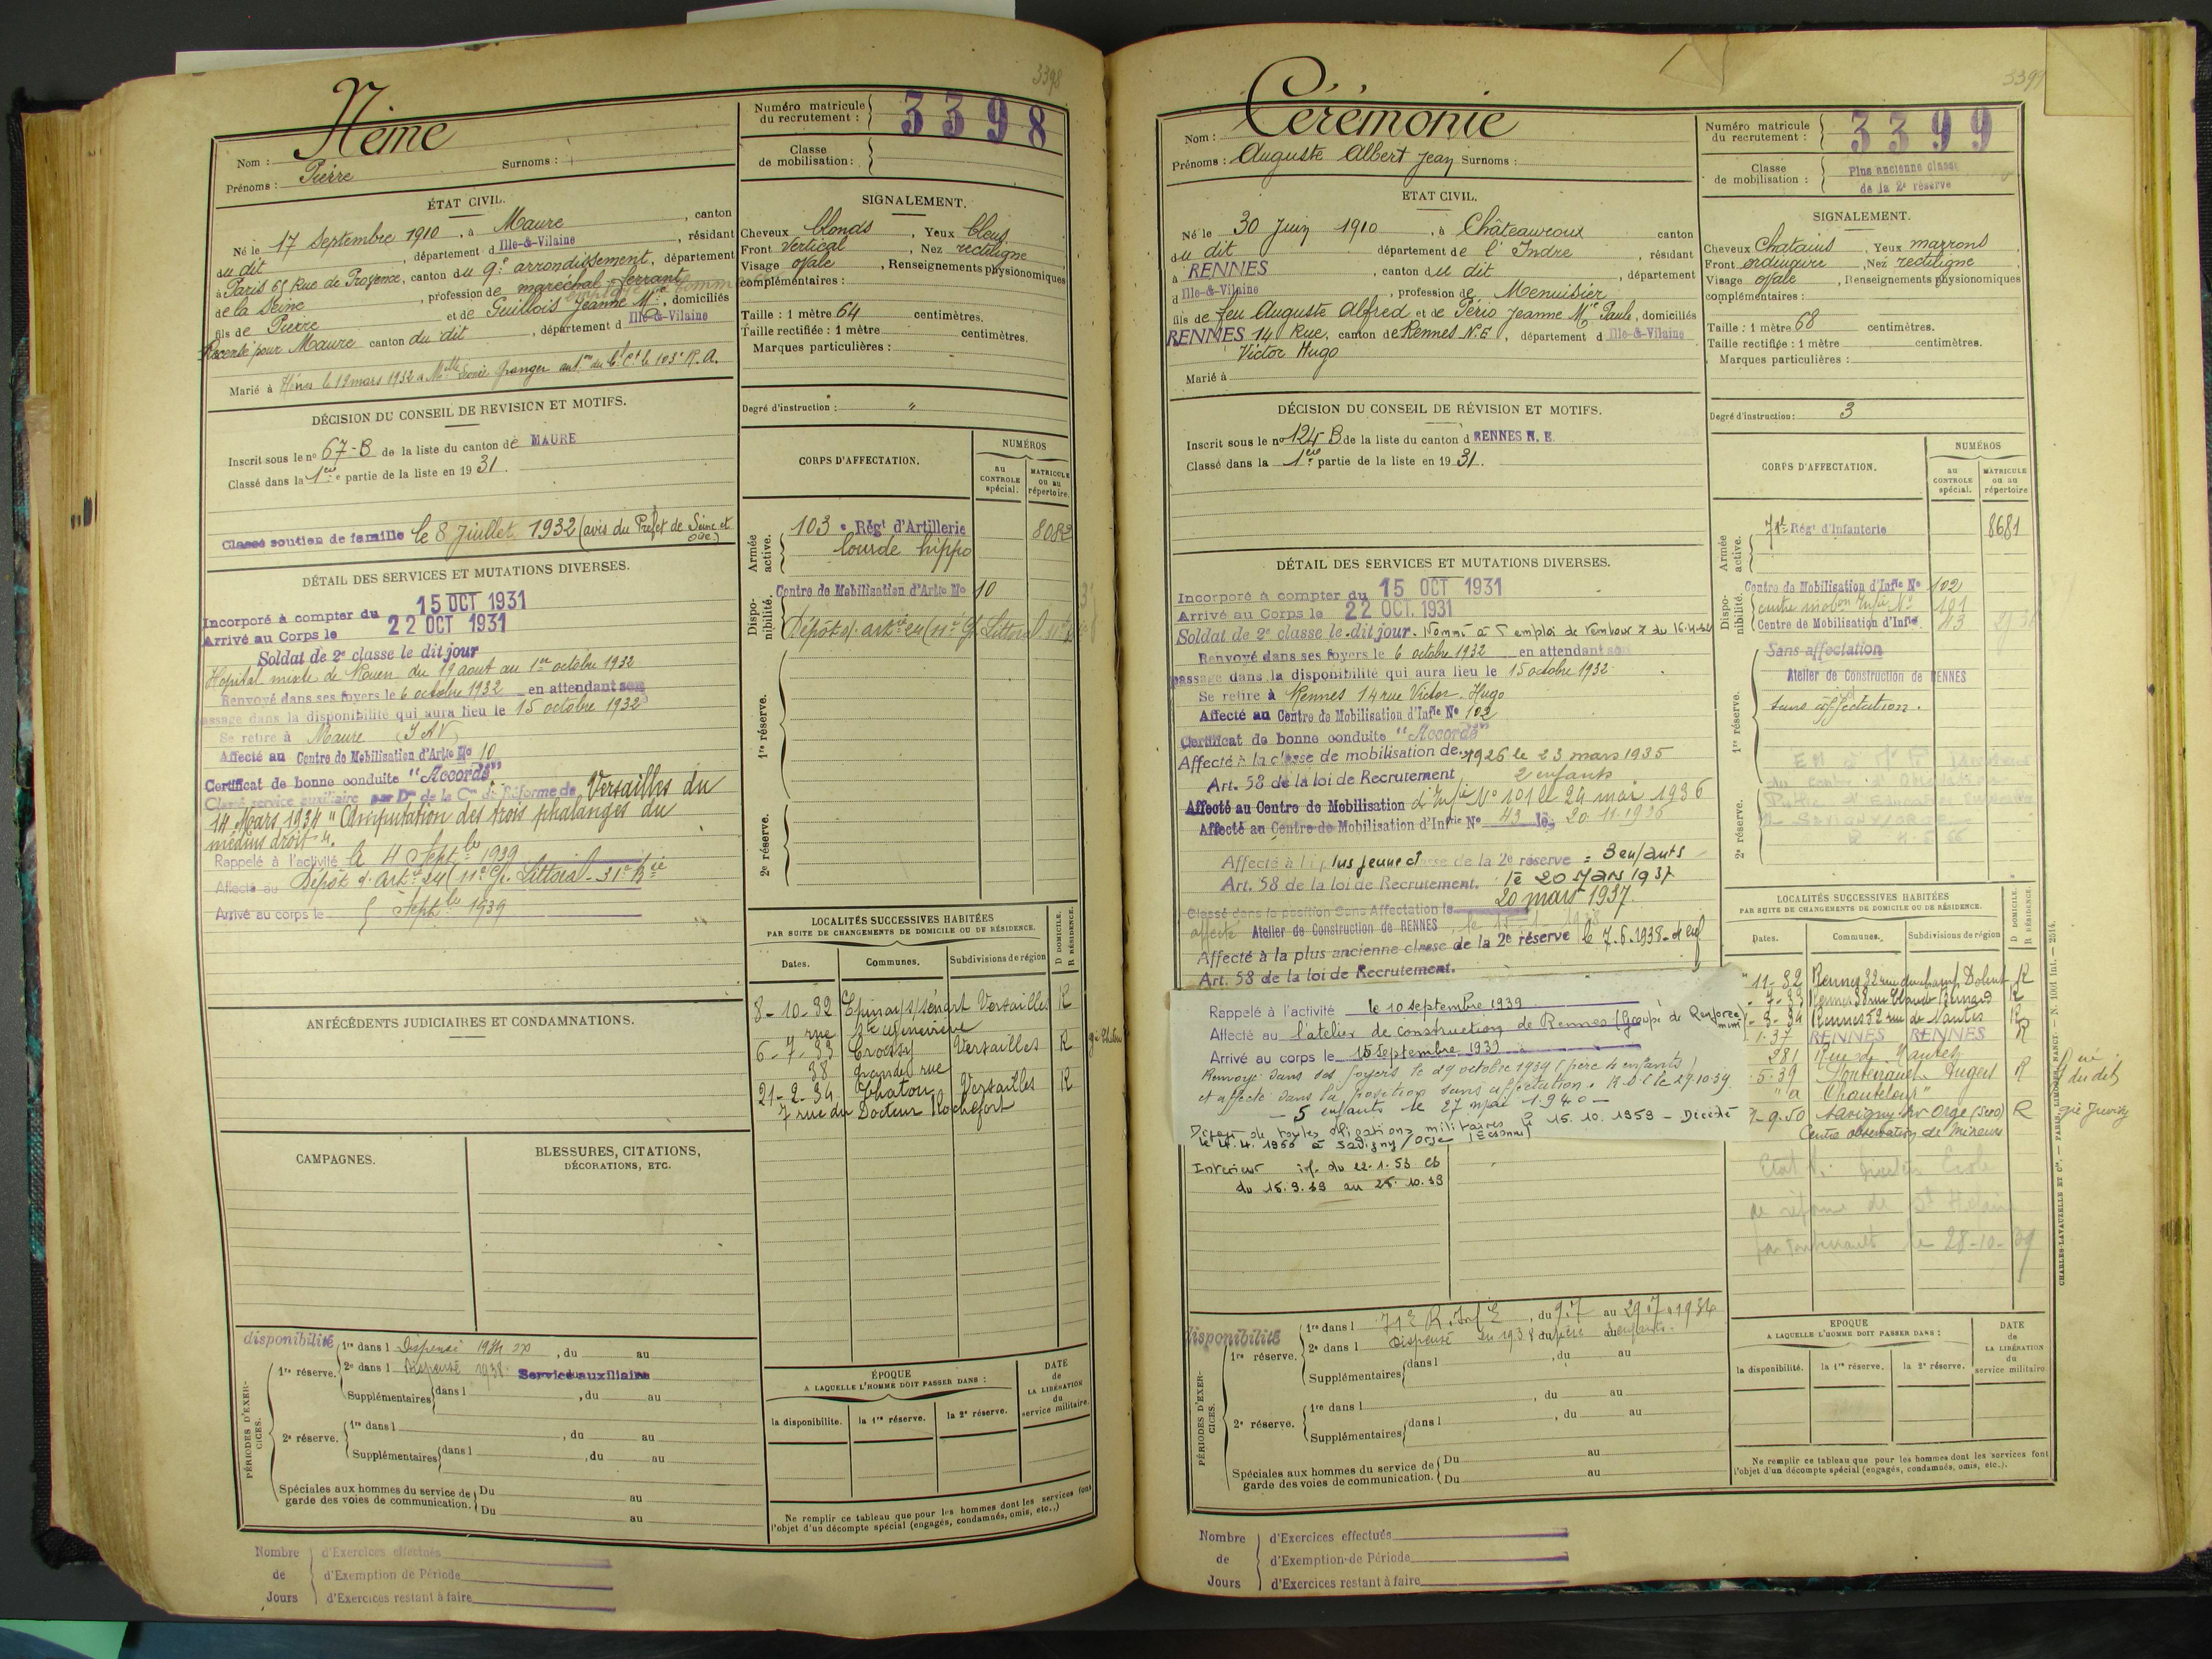 3398
Numéro matricule du recrutement : 3398
Nom : Néine
Surnoms :
Prénoms : Pierre
Classe de mobilisation :
ÉTAT CIVIL.
Né le 17 Septembre 1910, à Maure, canton
du dit, département d Ille-&-Vilaine, résidant
à Paris 65 Rue de Provence, canton du 9e arrondissement, département
de la Seine, profession de maréchal-ferrant
fils de Pierre et de Guillois Jeanne Mie, domiciliés
Recensé pour Maure canton du dit, département d Ille-&-Vilaine
Marié à le 12 mars 1932 a Melle Granger
SIGNALEMENT.
Cheveux blonds, Yeux bleus
Front vertical, Nez rectiligne
Visage ovale, Renseignements physionomiques
complémentaires :
Taille : 1 mètre 64 centimètres.
Taille rectifiée : 1 mètre centimètres.
Marques particulières :
Degré d'instruction : "
DÉCISION DU CONSEIL DE REVISION ET MOTIFS.
Inscrit sous le no 67-B de la liste du canton de MAURE
Classé dans la 1ère partie de la liste en 1931.
Classé soutien de famille le 8 Juillet 1932 (avis du Préfet de Seine et Oise)
CORPS D'AFFECTATION.
NUMÉROS
au CONTROLE spécial.
MATRICULE ou au répertoire.
Armée active.
103e Régt d'Artillerie 8082
lourde hippo
Disponibilité.
Centre de Mobilisation d'Artie No 10
Dépôt d'artie 24 (11e Gr. Littoral
1re réserve.
2e réserve.
DÉTAIL DES SERVICES ET MUTATIONS DIVERSES.
Incorporé à compter du 15 OCT 1931
Arrivé au Corps le 22 OCT 1931
Soldat de 2e classe le dit jour
Hopital mixte de Rouen du 19 aout au 1er octobre 1932
Renvoyé dans ses foyers le 6 octobre 1932 en attendant son
passage dans la disponibilité qui aura lieu le 15 octobre 1932
Se retire à Maure (I & V)
Affecté au Centre de Mobilisation d'Artie No 10
Certificat de bonne conduite "Accordé"
Classé service auxiliaire par Don de la Con de Réforme de Versailles du
14 Mars 1934 "Amputation des trois phalanges du
médius droit".
Rappelé à l'activité le 4 Septbre 1939
Affecté au Dépôt d'artie 24 (11e Gr. Littoral - 31e Bie
Arrivé au corps le 5 Septbre 1939
LOCALITÉS SUCCESSIVES HABITÉES
PAR SUITE DE CHANGEMENTS DE DOMICILE OU DE RÉSIDENCE.
D DOMICILE. R RÉSIDENCE.
Dates. Communes. Subdivisions de région
8-10-32 Epinay s/ Sénart Versailles R
rue Ste Geneviève
6-7-33 Croissy Versailles R
38 grande rue
21-2-34 Chatou Versailles R
7 rue du Docteur Rochefort
ANTÉCÉDENTS JUDICIAIRES ET CONDAMNATIONS.
CAMPAGNES.
BLESSURES, CITATIONS, DÉCORATIONS, ETC.
PÉRIODES D'EXERCICES.
disponibilité
1re réserve.
1re dans l Dispensé 1934, du au
2e dans l Dispensé 1938 Service auxiliaire
Supplémentaires dans l, du au
2e réserve.
1re dans l, du au
Supplémentaires dans l, du au
Spéciales aux hommes du service de garde des voies de communication.
Du au
Du au
ÉPOQUE
A LAQUELLE L'HOMME DOIT PASSER DANS :
la disponibilité. la 1re réserve. la 2e réserve.
DATE de LA LIBÉRATION du service militaire.
Ne remplir ce tableau que pour les hommes dont les services font
l'objet d'un décompte spécial (engagés, condamnés, omis, etc..)
Nombre de Jours
d'Exercices effectués
d'Exemption de Période
d'Exercices restant à faire
3399
Numéro matricule du recrutement : 3399
Nom : Cérémonie
Prénoms : Auguste Albert Jean Surnoms :
Classe de mobilisation : Plus ancienne classe
de la 2e réserve
ETAT CIVIL.
Né le 30 Juin 1910, à Châteauroux canton
du dit département de l'Indre, résidant
à RENNES, canton du dit, département
d Ille-&-Vilaine, profession de Menuisier
fils de feu Auguste Alfred et de Pério Jeanne Mie Paule, domiciliés
RENNES 14 Rue, canton de Rennes N.E, département d Ille-&-Vilaine
Victor Hugo
Marié à
SIGNALEMENT.
Cheveux Chatains, Yeux marrons
Front ordinaire, Nez rectiligne
Visage ovale, Renseignements physionomiques
complémentaires :
Taille : 1 mètre 68 centimètres.
Taille rectifiée : 1 mètre centimètres.
Marques particulières :
Degré d'instruction : 3
DÉCISION DU CONSEIL DE RÉVISION ET MOTIFS.
Inscrit sous le no 124 B de la liste du canton d RENNES N. E.
Classé dans la 1ère partie de la liste en 1931.
CORPS D'AFFECTATION.
NUMÉROS
au CONTROLE spécial.
MATRICULE ou au répertoire
Armée active.
71e Régt d'Infanterie 8681
Disponibilité.
Centre de Mobilisation d'Infie No 102
centre mobon Infie No 101
Centre de Mobilisation d'Infie 43
1re réserve.
Sans affectation
Atelier de Construction de RENNES
sans affectation.
2e réserve.
DÉTAIL DES SERVICES ET MUTATIONS DIVERSES.
Incorporé à compter du 15 OCT 1931
Arrivé au Corps le 22 OCT. 1931
Soldat de 2e classe le dit jour. Nommé à l'emploi de
Renvoyé dans ses foyers le 6 octobre 1932 en attendant son
passage dans la disponibilité qui aura lieu le 15 octobre 1932
Se retire à Rennes 14 rue Victor Hugo
Affecté au Centre de Mobilisation d'Infie No 102
Certificat de bonne conduite "Accordé"
Affecté à la classe de mobilisation de 1926 le 23 mars 1935
Art. 58 de la loi de Recrutement 2 enfants
Affecté au Centre de Mobilisation d'Infie No 101 le 24 mai 1936
Affecté au Centre de Mobilisation d'Infie No 43 le 20.11.1936
Affecté à la plus jeune classe de la 2e réserve = 3 enfants
Art. 58 de la loi de Recrutement. le 20 Mars 1937
Classé dans la position Sans Affectation le 20 mars 1937.
affecté Atelier de Construction de RENNES, le 15-1-1938
Affecté à la plus ancienne classe de la 2e réserve le 7.6.1938 - 4 enf
Art. 58 de la loi de Recrutement.
Rappelé à l'activité le 10 septembre 1939
Affecté au l'atelier de construction de Rennes (Groupe de Renforcement)
Arrivé au corps le 15 Septembre 1939
Renvoyé dans ses foyers le 29 octobre 1939 (père 4 enfants)
et affecté dans la position sans affectation. R.D.C le 29.10.39
- 5 enfants le 27 mai 1940 -
Dégagé de toutes obligations militaires le 15.10.1959 - Décédé
le 4.4.1966 à Savigny/Orge (Essonne)
Intérieur inf. du 22.1.53
du 15.9.39 au 28.10.39
LOCALITÉS SUCCESSIVES HABITÉES
PAR SUITE DE CHANGEMENTS DE DOMICILE OU DE RÉSIDENCE.
D DOMICILE. R RÉSIDENCE.
Dates. Communes. Subdivisions de région
11-32 Rennes 32 rue du champ Dolent R
-7-33 Rennes 38 rue Claude Bernard R
-3-34 Rennes 52 rue de Nantes R
1.37 RENNES RENNES R
281 Rue de Nantes
.5-39 Fontevrault Angers R
"a Chanteloup"
7-9.50 Savigny sur Orge (S&O) R
Centre observation de Mineurs
CHARLES-LAVAUZELLE ET Cie — PARIS, LIMOGES, NANCY — N. 1001 Int. — 2514.
PÉRIODES D'EXERCICES.
disponibilité
1re réserve.
1re dans l 71e R. Inf, du 9.7 au 29.7.1934
2e dans l Dispensé en 1938 père enfants.
Supplémentaires dans l, du au
, du au
2e réserve.
1re dans l
Supplémentaires dans l, du au
Spéciales aux hommes du service de garde des voies de communication.
Du au
Du au
EPOQUE
A LAQUELLE L'HOMME DOIT PASSER DANS :
la disponibilité. la 1re réserve. la 2e réserve.
DATE de LA LIBÉRATION du service militaire
Ne remplir ce tableau que pour les hommes dont les services font
l'objet d'un décompte spécial (engagés, condamnés, omis, etc.).
Nombre de Jours
d'Exercices effectués
d'Exemption de Période
d'Exercices restant à faire